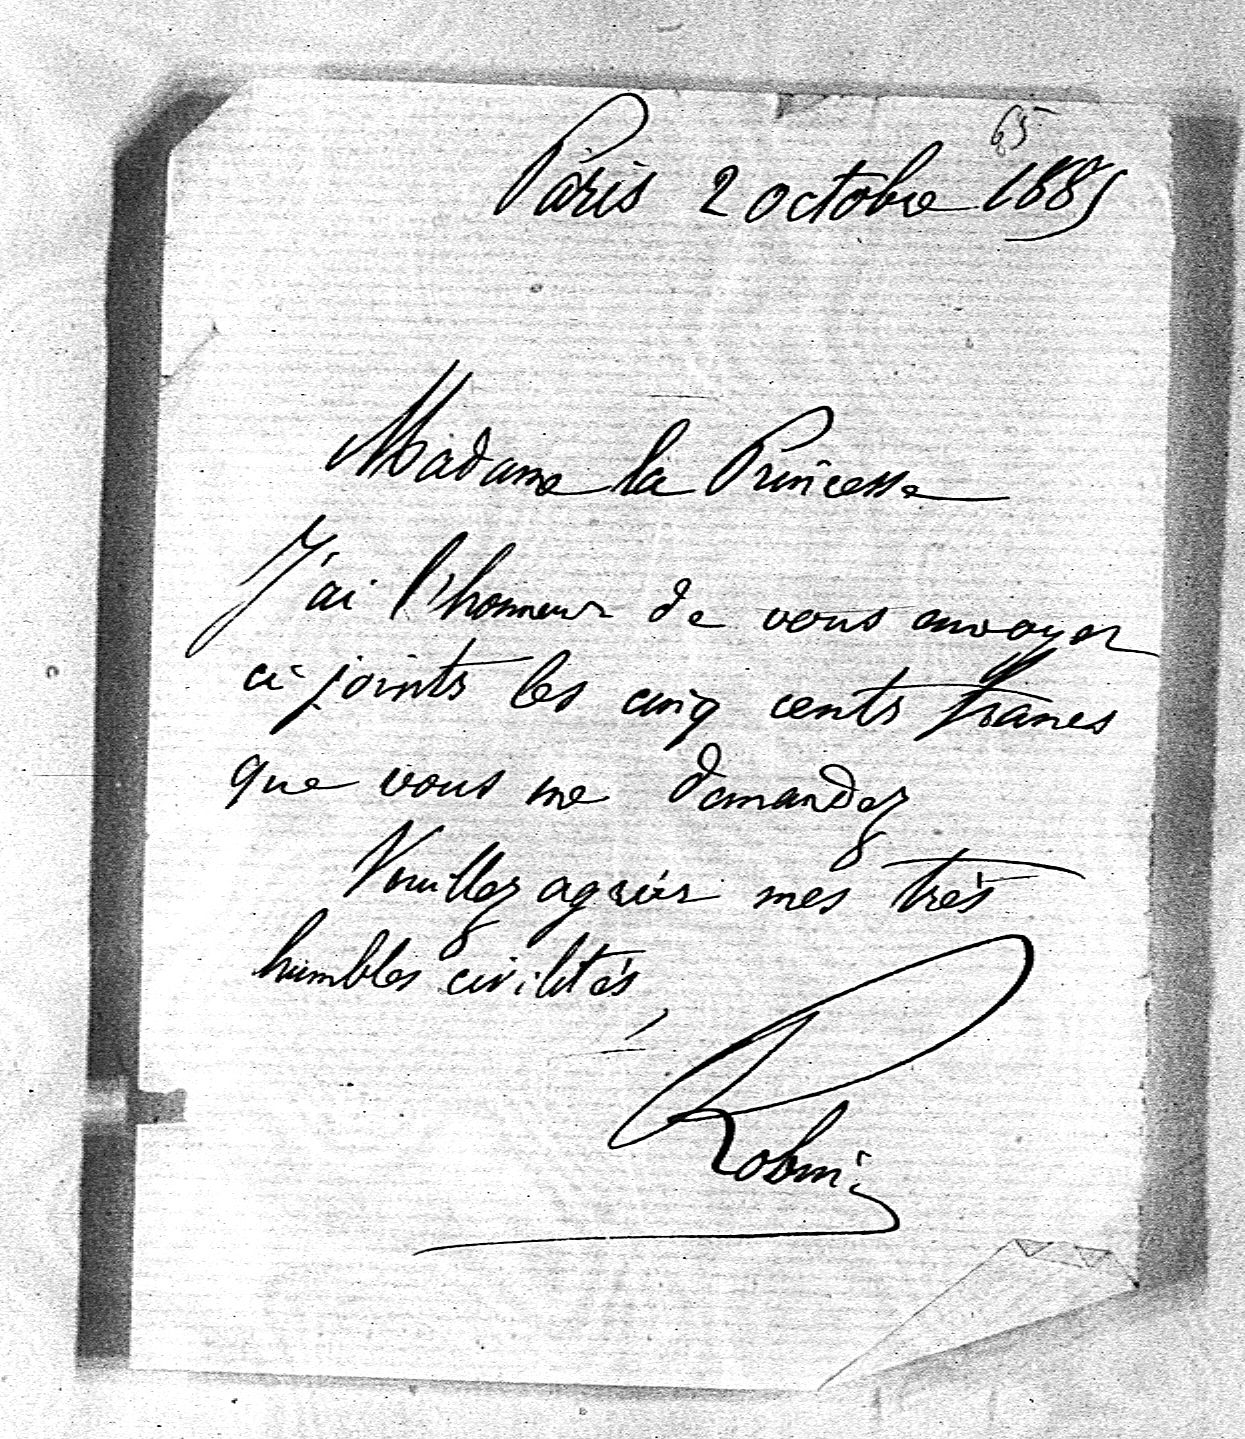 65
Paris 2 octobre 1885
Madame la Princesse
J'ai l'honneur de vous envoyer
ci joints les cinq cents francs
que vous me demandez
Veuillez agréer mes très
humbles civilités
Robin